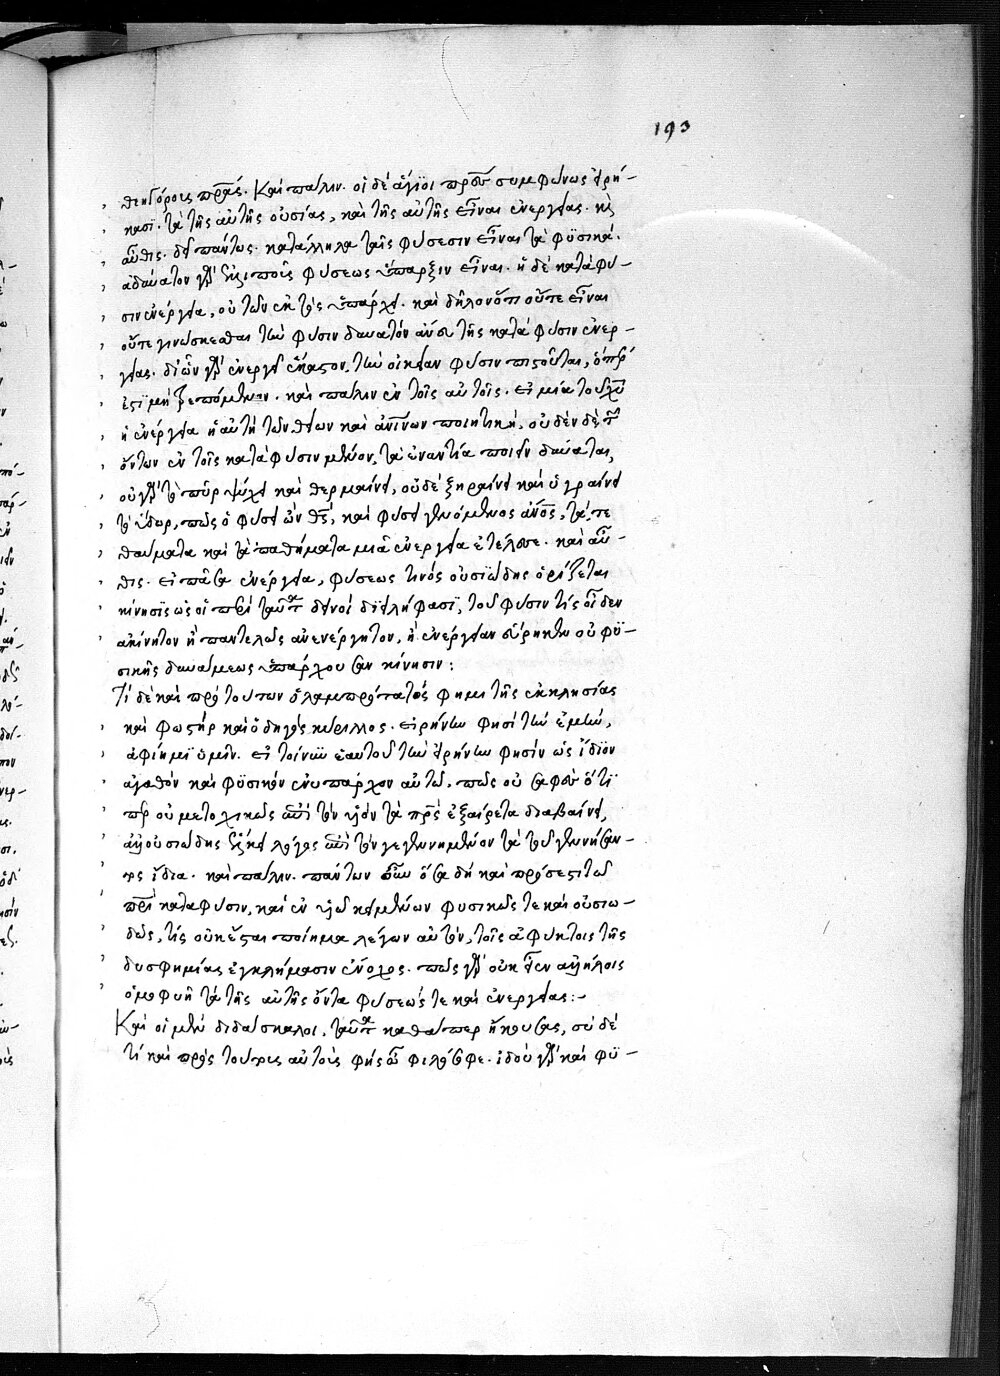 193
θενδόροις πρᾶξ. Καὶ πάλιν. οἱ δὲ ἅγϊοι πρσ συμφώνως εἰρή-
κασϊ. τὰ τῆς αὐτῆς οὐσίας, καὶ τῆς αὐτῆς εἶναι ἐνεργείας. κὶ
αὖθις. δεῖ πάντως κατάλληλα ταῖς φύσεσιν εἶναι τὰ φϋσικά.
ἀδύνατον γὰρ φύσεως ὕπαρξιν εἶναι. ἡ δὲ κατὰ φύ-
σιν ἐνέργεια, οὐ τῶν ἐκτὸς ὑπάρχει. καὶ δῆλον ὅτι οὔτε εἶναι
οὔτε γινώσκεσθαι τὴν φύσιν δυνατὸν ἄνευ τῆς κατὰ φύσιν ἐνερ-
γείας. δι' ὧν γὰρ ἐνεργεῖ ἕκαστον, τὴν οἰκείαν φύσιν πιστοῦται, ὅπερ
ἐστϊ μὴ τρεπόμενον. καὶ πάλιν ἐν τοῖς αὐτοῖς. εἰ μία τοῦ χῦ
ἡ ἐνέργεια ἡ αὐτὴ τῶν θείων καὶ ἀνίνων ποιητικὴ, οὐδὲν δὲ τῶν
ὄντων ἐν τοῖς κατὰ φύσιν μένον, τὰ ἐναντία ποιεῖν δύναται,
οὐ γὰρ τὸ πῦρ ψύχει καὶ θερμαίνει, οὐδὲ ξηραίνει καὶ ὑγραίνει
τὸ ὕδωρ, πῶς ὁ φύσει ὢν θς, καὶ φύσει γενόμενος ἄνος, τά τε
θαύματα καὶ τὰ παθήματα μιᾷ ἐνεργείᾳ ἐτέλεσε. καὶ αὖ-
θις. εἰ πᾶσα ἐνέργεια, φύσεως τινὸς οὐσϊώδης ὁρίζεται
κίνησϊς ὡς οἱ περὶ ταῦτα δεινοὶ δϊειλήφασϊ, ποῦ φύσιν τίς οἶδεν
ἀκίνητον ἢ παντελῶς ἀνενέργητον, ἢ ἐνέργειαν εὕρηκεν οὐ φϋ-
σικῆς δυνάμεως ὑπάρχουσαν κίνησιν:
Τί δὲ καὶ πρὸ τούτων ὁ λαμπρότατός φημι τῆς ἐκκλησίας
καὶ φωστὴρ καὶ ὁδηγὸς κύριλλος. εἰρήνην φησὶ τὴν ἐμὴν,
ἀφίημϊ ὑμῖν. εἰ τοίνυν ἑαυτοῦ τὴν εἰρήνην φησὶν ὡς ἴδϊον
ἀγαθὸν καὶ φϋσικὸν ἐνυπάρχον αὐτῷ, πῶς οὐ σαφὲς ὅτϊ
περ οὐ μετοχικῶς ἐπὶ τὸν υἱὸν τὰ πρς ἐξαίρετα διαβαίνει,
ἀλλ' οὐσιώδης ἕλκει λόγος ἐπὶ τὸν γεγεννημένον τὰ τοῦ γεννήσαν-
τος ἴδια. καὶ πάλιν. πάντων οὖν ὅσα δὴ καὶ πρόσεστι τῷ
πρὶ κατα φύσιν, καὶ ἐν υἱῷ κειμένων φυσικῶς τε καὶ οὐσιω-
δῶς, τίς οὐκ ἔσται ποίημα λέγων αὐτὸν, τοῖς ἀφύκτοις τῆς
δυσφημίας ἐγκλήμασιν ἔνοχος. πῶς γὰρ οὐκ εἶεν ἀλλήλοις
ὁμοφυῆ τὰ τῆς αὐτῆς ὄντα φύσεώς τε καὶ ἐνεργείας:-
Καὶ οἱ μὲν διδάσκαλοι, ταῦτα καθάπερ ἤκουσας, σὺ δὲ
τί καὶ πρὸς τούτοις αὐτοῖς φὴς ὦ φιλόσοφε. ἰδοὺ γὰρ καὶ φϋ-